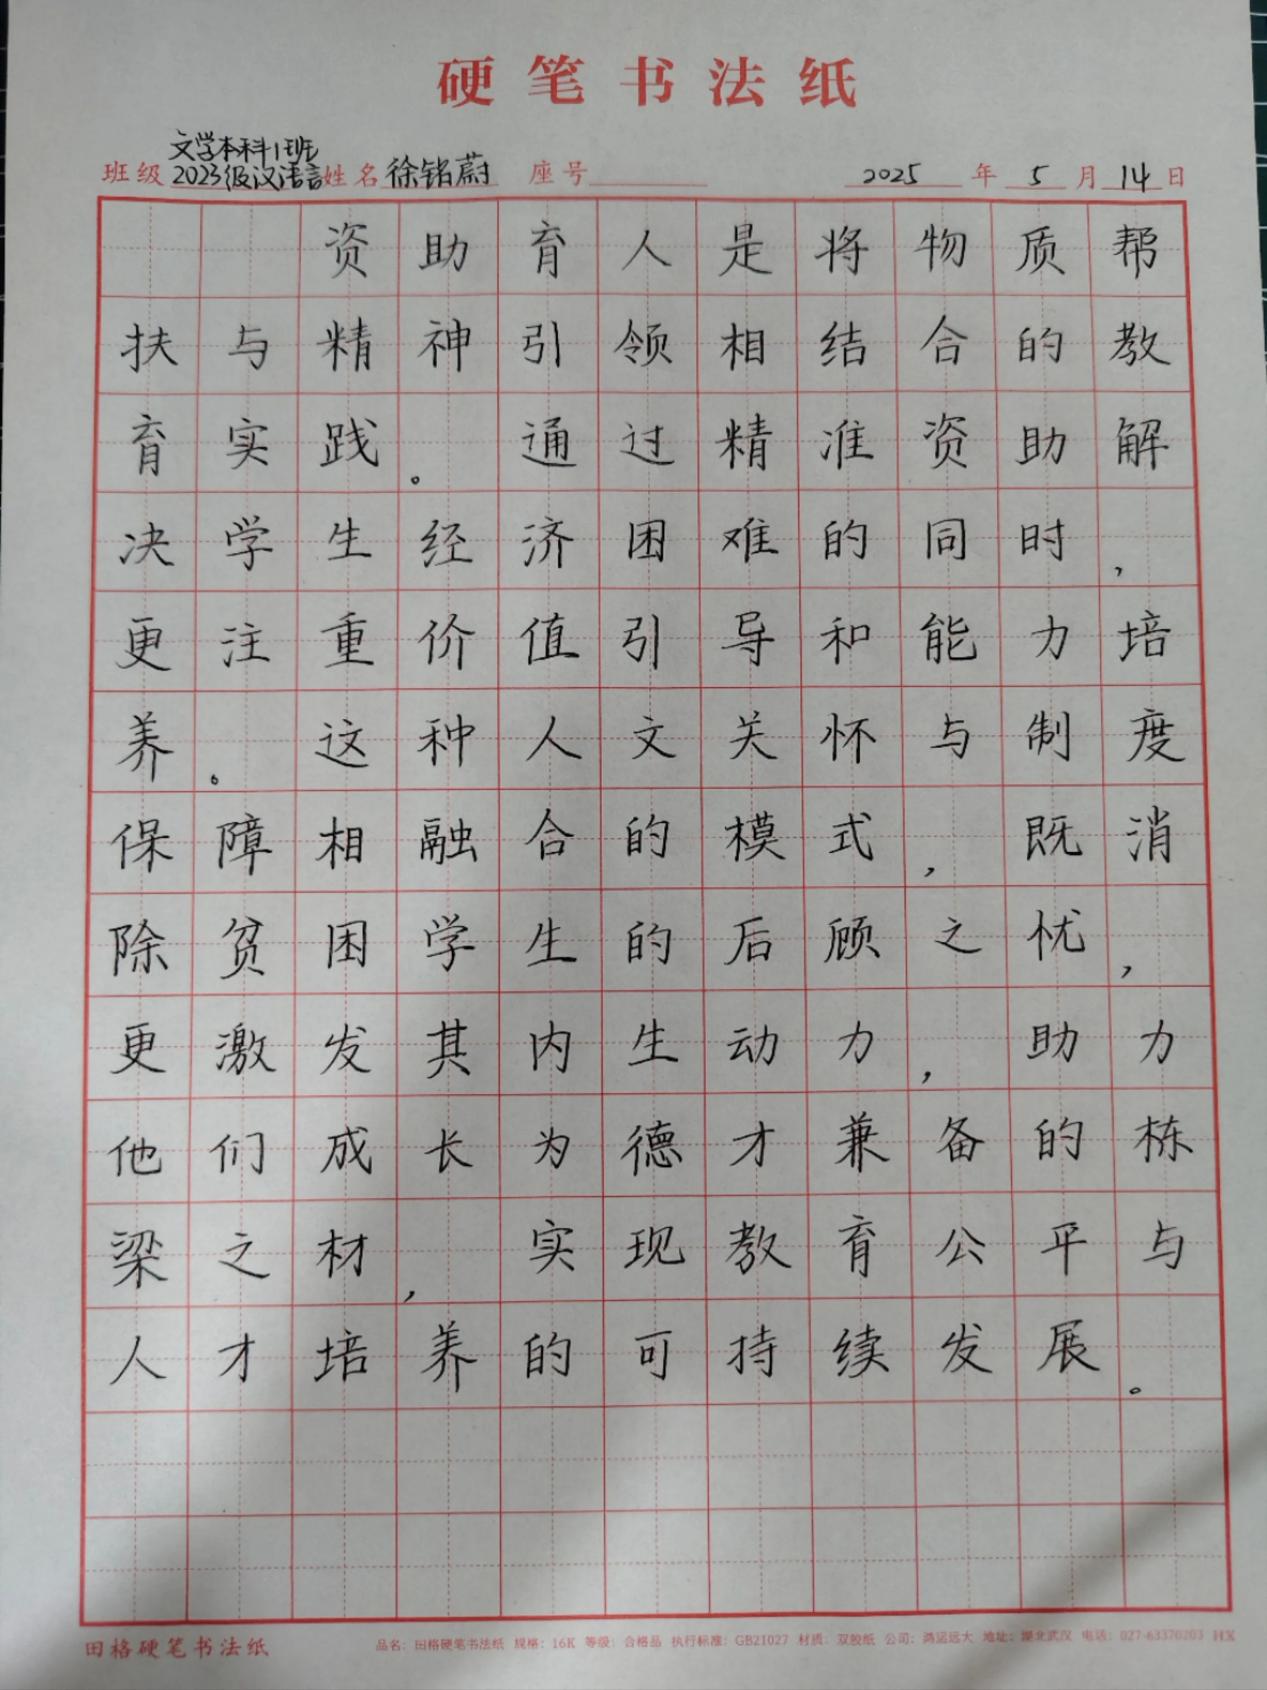 硬笔书法纸
文学本科1班
班级 2023级汉语言 姓名 徐铭蔚 座号 2025 年 5 月 14 日
资助育人是将物质帮
扶与精神引领相结合的教
育实践。通过精准资助解
决学生经济困难的同时,
更注重价值引导和能力培
养。这种人文关怀与制度
保障相融合的模式,既消
除贫困学生的后顾之忧,
更激发其内生动力,助力
他们成长为德才兼备的栋
梁之材,实现教育公平与
人才培养的可持续发展。
田格硬笔书法纸 品名:田格硬笔书法纸 规格:16K 等级:合格品 执行标准:GB21027 材质:双胶纸 公司:鸿运远大 地址:湖北武汉 电话:027-63370203 HX